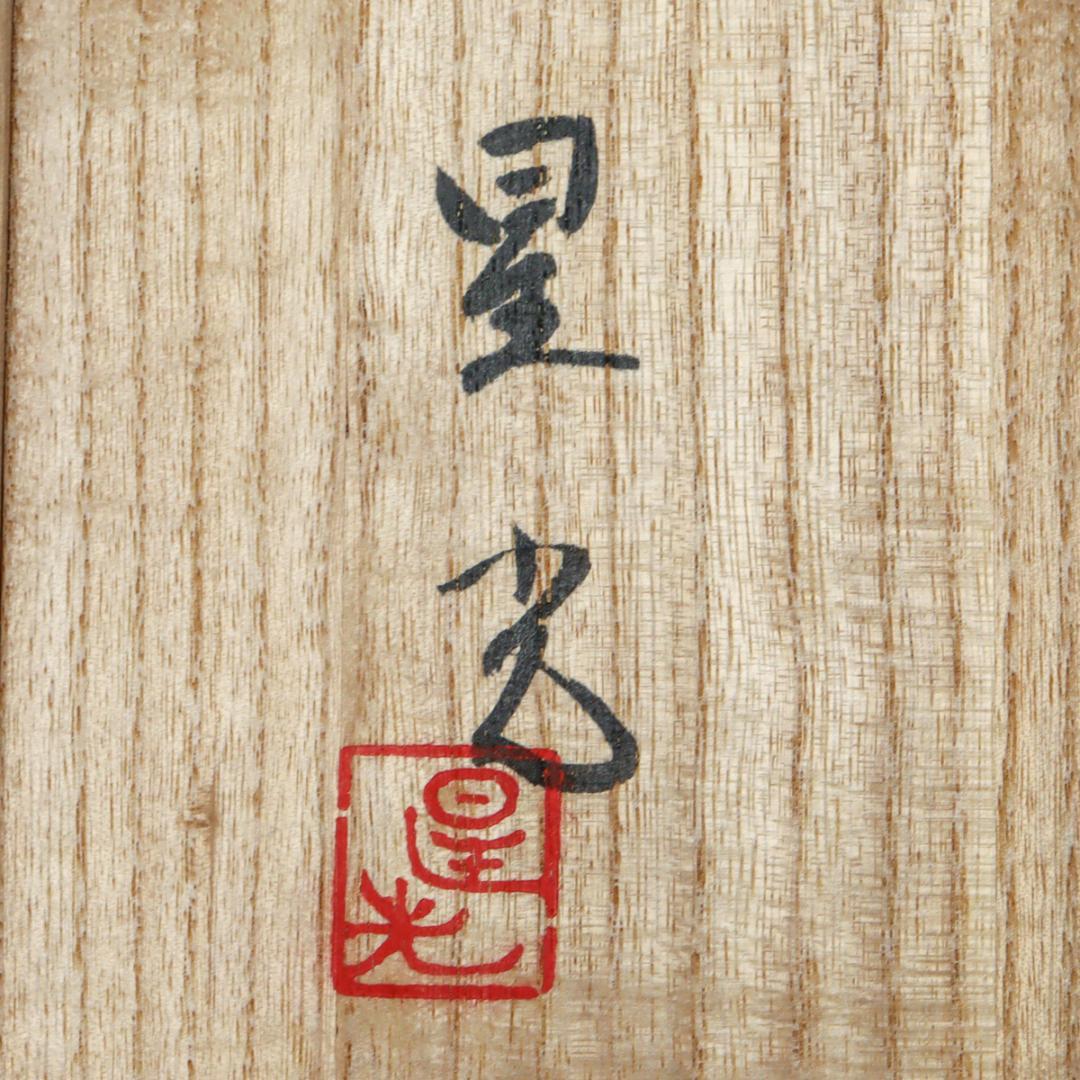 星光
星光